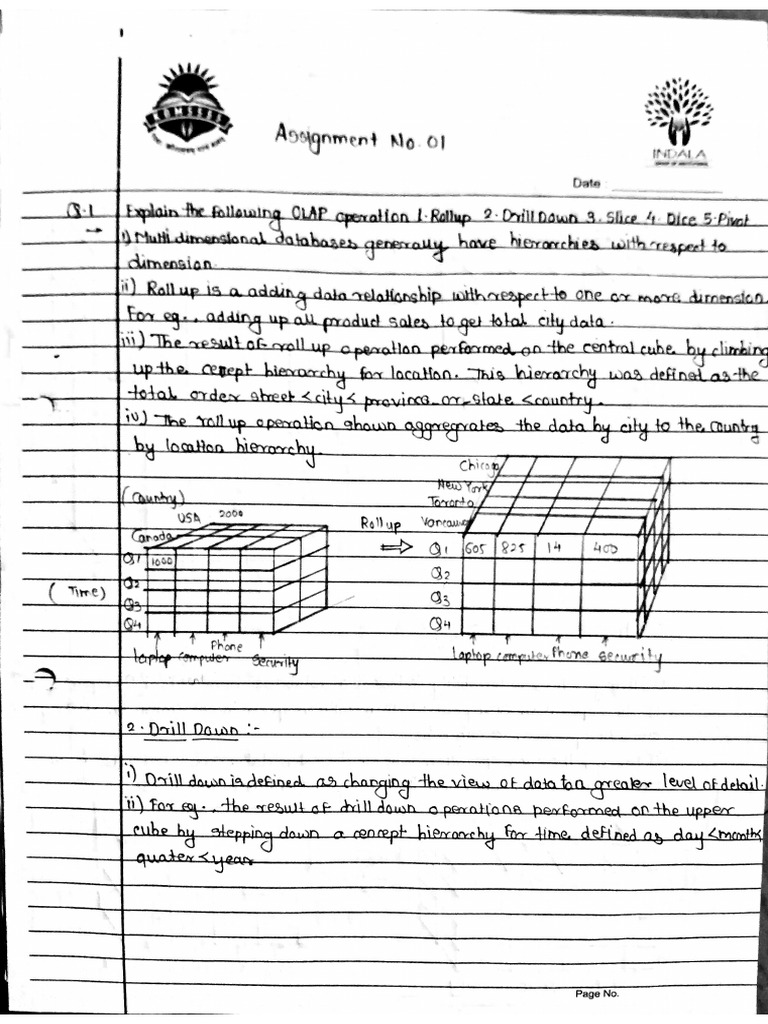 KGMSSSS
INDALA
Assignment No. 01
Date
Q.1 Explain the following OLAP operation 1. Rollup 2. Drill Down 3. Slice 4. Dice 5. Pivot
→ i) Multi dimensional databases generally have hierarchies with respect to
dimension.
ii) Roll up is a adding data relationship with respect to one or more dimension.
For eg., adding up all product sales to get total city data.
iii) The result of roll up operation performed on the central cube by climbing
up the cencept hierarchy for location. This hierarchy was defined as the
total order street <city< province_or_state <country.
iv) The roll up operation shown aggregrates the data by city to the country
by location hierarchy.
(Country)
USA 2000
Canada
Q1 1000
Q2
(Time)
Q3
Q4
Laptop computer Phone Security
Roll up
⇒
Chicago
New York
Toronto
Vancauver
Q1 605 825 14 400
Q2
Q3
Q4
Laptop computer Phone Security
2. Drill Down :-
i) Drill down is defined as changing the view of data to a greater level of detail.
ii) For eg., the result of drill down operations performed on the upper
cube by stepping down a cencept hierarchy for time defined as day <month<
quater<year
Page No.